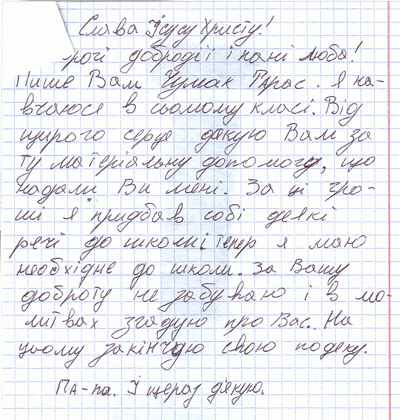 Слава Ісусу Христу!
рогі добродії і пані люба!
Пише Вам Чумак Тарас. Я на-
вчаюся в сьомому класі. Від
щирого серця дякую Вам за
ту матеріальну допомогу, що
надали Ви мені. За ці гро-
ші я придбав собі деякі
речі до школи і тепер я маю
необхідне до школи. За Вашу
доброту не забуваю і в мо-
литвах згадую про Вас. На
цьому закінчую свою подяку.
Па-па. І ще раз дякую.